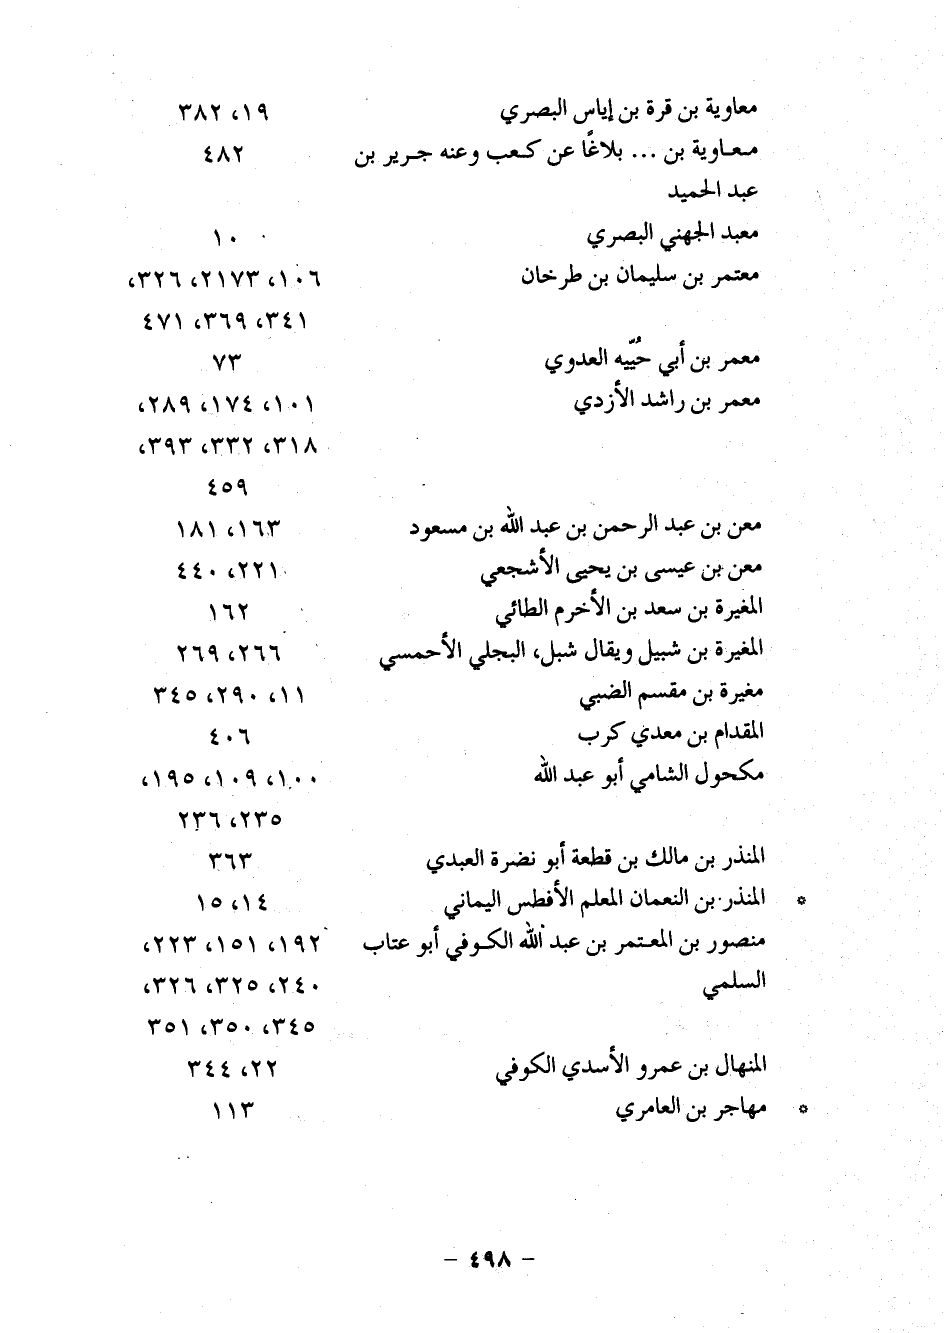 معاوية بن قرة بن إياس البصري ١٩، ٣٨٢
معاوية بن ... بلاغًا عن كعب وعنه جرير بن ٤٨٢
عبد الحميد
معبد الجهني البصري ١٠
معتمر بن سليمان بن طرخان ١٠٦، ٢١٧٣، ٣٢٦،
٣٤١، ٣٦٩، ٤٧١
معمر بن أبي حُيّيه العدوي ٧٣
معمر بن راشد الأزدي ١٠١، ١٧٤، ٢٨٩،
٣١٨، ٣٣٢، ٣٩٣،
٤٥٩
معن بن عبد الرحمن بن عبد الله بن مسعود ١٦٣، ١٨١
معن بن عيسى بن يحيى الأشجعي ٢٢١، ٤٤٠
المغيرة بن سعد بن الأخرم الطائي ١٦٢
المغيرة بن شبيل ويقال شبل، البجلي الأحمسي ٢٦٦، ٢٦٩
مغيرة بن مقسم الضبي ١١، ٢٩٠، ٣٤٥
المقدام بن معدي كرب ٤٠٦
مكحول الشامي أبو عبد الله ١٠٠، ١٠٩، ١٩٥،
٢٣٥، ٢٣٦
المنذر بن مالك بن قطعة أبو نضرة العبدي ٣٦٣
* المنذر بن النعمان المعلم الأفطس اليماني ١٤، ١٥
منصور بن المعتمر بن عبد الله الكوفي أبو عتاب ١٩٢، ١٥١، ٢٢٣،
السلمي ٢٤٠، ٣٢٥، ٣٢٦،
٣٤٥، ٣٥٠، ٣٥١
المنهال بن عمرو الأسدي الكوفي ٢٢، ٣٤٤
* مهاجر بن العامري ١١٣
- ٤٩٨ -